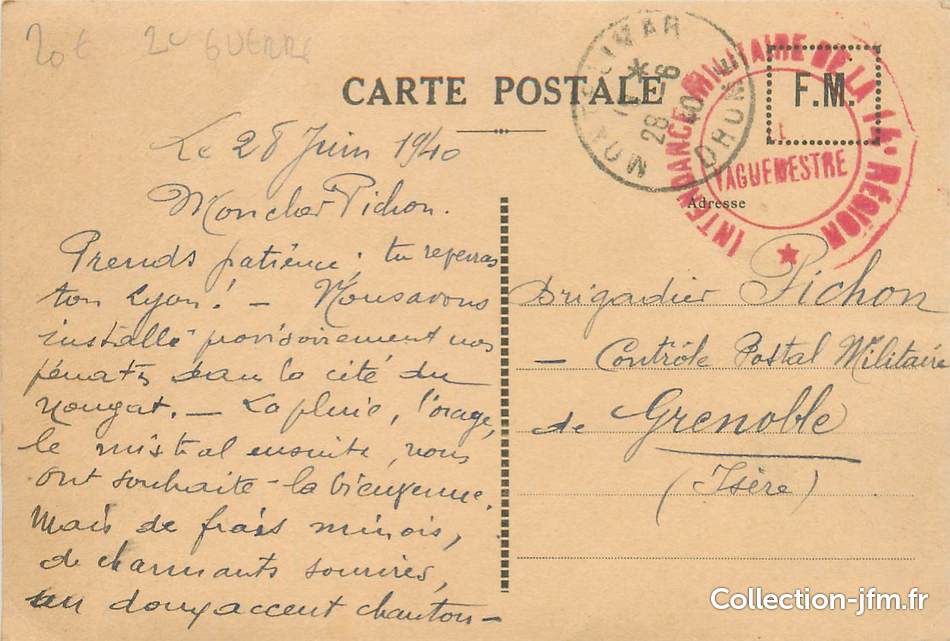 20€ 2e GUERRE
CARTE POSTALE
MONTELIMAR
*
28 -6
40
DROME
INTENDANCE MILITAIRE DE LA 14e RÉGION
VAGUEMESTRE
F.M.
Adresse
Le 28 Juin 1940
Mon cher Pichon.
Prends patience, tu reverras
ton Lyon! - Nous avons
installé provisoirement nos
pénates dans la cité du
Nougat. - La pluie, l'orage,
le mistral ensuite, nous
ont souhaité la bienvenue.
Mais de frais minois,
de charmants sourires,
un doux accent chanton-
Brigadier Pichon
- Contrôle Postal Militaire
de Grenoble
(Isère)
Collection-jfm.fr